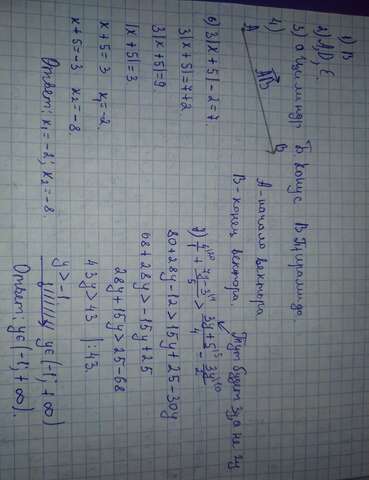 1) В
2) A, D, E.
3) а Цилиндр Б конус В Пирамида.
4)
A
AB
B
А - начало вектора
В - конец вектора
6) 3|x + 5| - 2 = 7.
3|x + 5| = 7 + 2.
3|x + 5| = 9.
|x + 5| = 3
x + 5 = 3 x₁ = -2.
x + 5 = -3 x₂ = -8.
Ответ: x₁ = -2; x₂ = -8.
Тут будет 3y а не 2y
80 + 28y - 12 > 15y + 25 - 30y
68 + 28y > -15y + 25
28y + 15y > 25 - 68
43y > 43 |: 43.
y > -1
y ∈ (-1; +∞)
Ответ: y ∈ (-1; +∞).